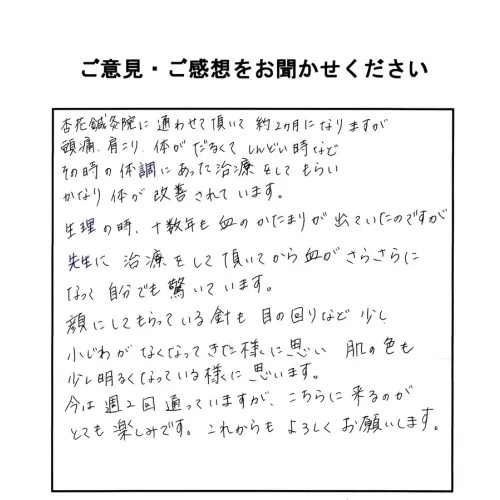 ご意見・ご感想をお聞かせください
杏花鍼灸院に通わせて頂いて約2ヶ月になりますが
頭痛、肩こり、体がだるくてしんどい時など
その時の体調にあった治療をしてもらい
かなり体が改善されています。
生理の時、十数年も血のかたまりが出ていたのですが
先生に治療をして頂いてから血がさらさらに
なって自分でも驚いています。
顔にしてもらっている針も目の回りなど少し
小じわがなくなってきた様に思い 肌の色も
少し明るくなっている様に思います。
今は週2回通っていますが、こちらに来るのが
とても楽しみです。これからもよろしくお願いします。